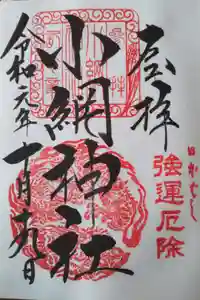 奉拝
強運厄除
小網神社
令和元年十月日